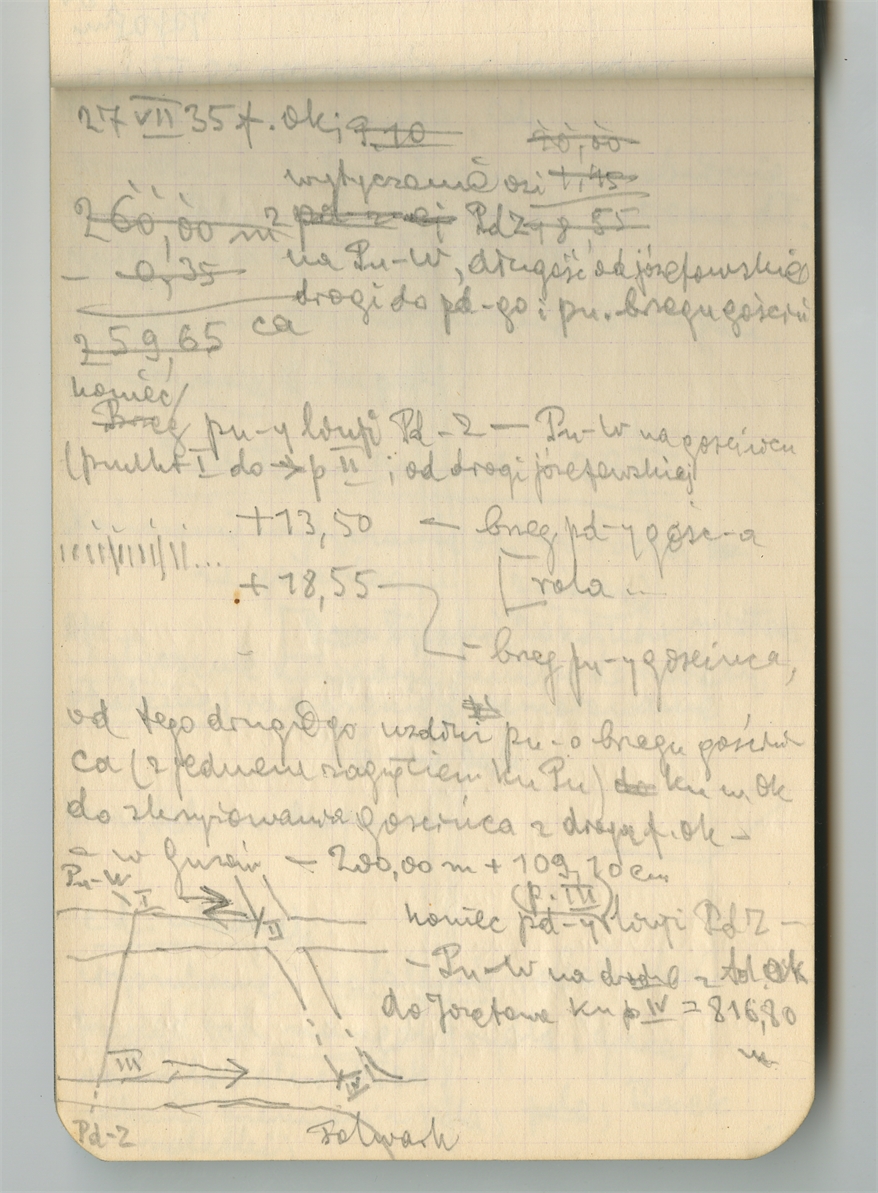 27 VII 35 f. ok; 9.10
20,00
wytyczanie osi 1,45
260,00 m² pd-z-ej PdZ 18 55
- 0,35 na Pn-W, długość od józefowskiej
drogi do pd-go i pn. brzegu gościń
259,65 ca
koniec
Brzeg pn-y linji Pd-Z — Pn-W na gościńcu
(punkt I do → p II ; od drogi józefowskiej
+13,50 — brzeg pd-y gośc-a
+18,55 [rola ...
- brzeg pn-y gościńca,
od tego drugiego wzdłuż pn-o brzegu gościń
ca (z jednem zagięciem ku Pn) do ku w. Ok
do skrzyżowania gościńca z drogą f. ok -
- w Guzów — 200,00 m + 109,20 cm
Pn-W I II
(p. III)
koniec pd-y linji PdZ —
- Pn-W na drodze z fol. Ok
do Józefowa ku p IV = 816,80
m
III IV
Pd-Z Folwark